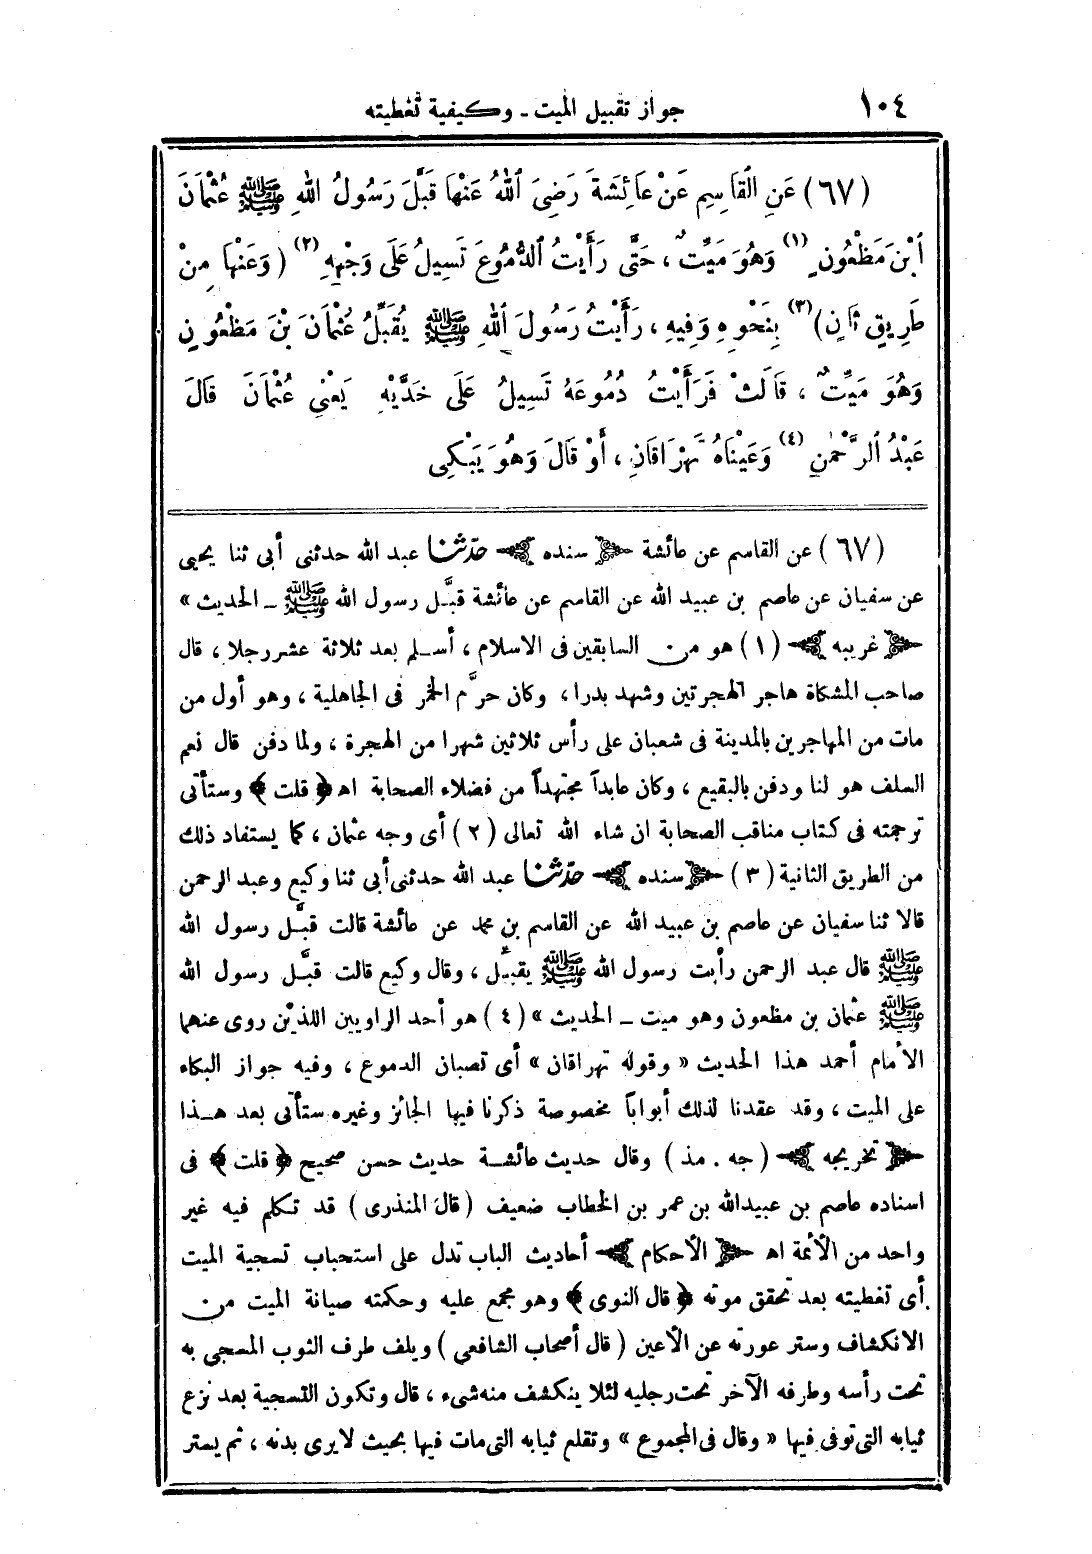 ١٠٤ جواز تقبيل الميت ـ وكيفية تغطيته
(٦٧) عَنِ الْقَاسِمِ عَنْ عَائِشَةَ رَضِيَ اللهُ عَنْهَا قَبَّلَ رَسُولُ اللهِ ﷺ عُثْمَانَ
ابْنَ مَظْعُونٍ (١) وَهُوَ مَيِّتٌ ، حَتَّى رَأَيْتُ الدُّمُوعَ تَسِيلُ عَلَى وَجْهِهِ (٢) ( وَعَنْهَا مِنْ
طَرِيقٍ ثَانٍ) (٣) بِنَحْوِهِ وَفِيهِ ، رَأَيْتُ رَسُولَ اللهِ ﷺ يُقَبِّلُ عُثْمَانَ بْنَ مَظْعُونٍ
وَهُوَ مَيِّتٌ ، قَالَتْ فَرَأَيْتُ دُمُوعَهُ تَسِيلُ عَلَى خَدَّيْهِ يَعْنِي عُثْمَانَ قَالَ
عَبْدُ الرَّحْمٰنِ (٤) وَعَيْنَاهُ تَهْرَاقَانِ ، أَوْ قَالَ وَهُوَ يَبْكِي
(٦٧) عن القاسم عن عائشة ﴿ سنده ﴾ حدّثنا عبد الله حدثنى أبى ثنا يحيى
عن سفيان عن عاصم بن عبيد الله عن القاسم عن عائشة قبَّل رسول الله ﷺ ـ الحديث »
﴿ غريبه ﴾ (١) هو من السابقين فى الاسلام ، أسلم بعد ثلاثة عشر رجلا ، قال
صاحب المشكاة هاجر الهجرتين وشهد بدرا ، وكان حرَّم الخمر فى الجاهلية ، وهو أول من
مات من المهاجرين بالمدينة فى شعبان على رأس ثلاثين شهرا من الهجرة ، ولما دفن قال نعم
السلف هو لنا ودفن بالبقيع ، وكان عابداً مجتهداً من فضلاء الصحابة اه ﴿ قلت ﴾ وستأتى
ترجمته فى كتاب مناقب الصحابة ان شاء الله تعالى (٢) أى وجه عثمان ، كما يستفاد ذلك
من الطريق الثانية (٣) ﴿ سنده ﴾ حدّثنا عبد الله حدثنى أبى ثنا وكيع وعبد الرحمن
قالا ثنا سفيان عن عاصم بن عبيد الله عن القاسم بن محمد عن عائشة قالت قبَّل رسول الله
ﷺ قال عبد الرحمن رأيت رسول الله ﷺ يقبِّل ، وقال وكيع قالت قبَّل رسول الله
ﷺ عثمان بن مظعون وهو ميت ـ الحديث » (٤) هو أحد الراويين اللذيْن روى عنهما
الأمام أحمد هذا الحديث « وقوله تهراقان » أى تصبان الدموع ، وفيه جواز البكاء
على الميت ، وقد عقدنا لذلك أبواباً مخصوصة ذكرنا فيها الجائز وغيره ستأتى بعد هذا
﴿ تخريجه ﴾ (جه . مذ) وقال حديث عائشة حديث حسن صحيح ﴿ قلت ﴾ فى
اسناده عاصم بن عبيدالله بن عمر بن الخطاب ضعيف (قال المنذرى) قد تكلم فيه غير
واحد من الأئمة اه ﴿ الأحكام ﴾ أحاديث الباب تدل على استحباب تسجية الميت
أى تغطيته بعد تحقق موته ﴿ قال النوى ﴾ وهو مجمع عليه وحكمته صيانة الميت من
الانكشاف وستر عورته عن الأعين (قال أصحاب الشافعي) ويلف طرف الثوب المسجى به
تحت رأسه وطرفه الآخر تحت رجليه لئلا ينكشف منه شىء ، قال وتكون التسجية بعد نزع
ثيابه التى توفى فيها « وقال فى المجموع » وتقلع ثيابه التى مات فيها بحيث لايرى بدنه ، ثم يستر